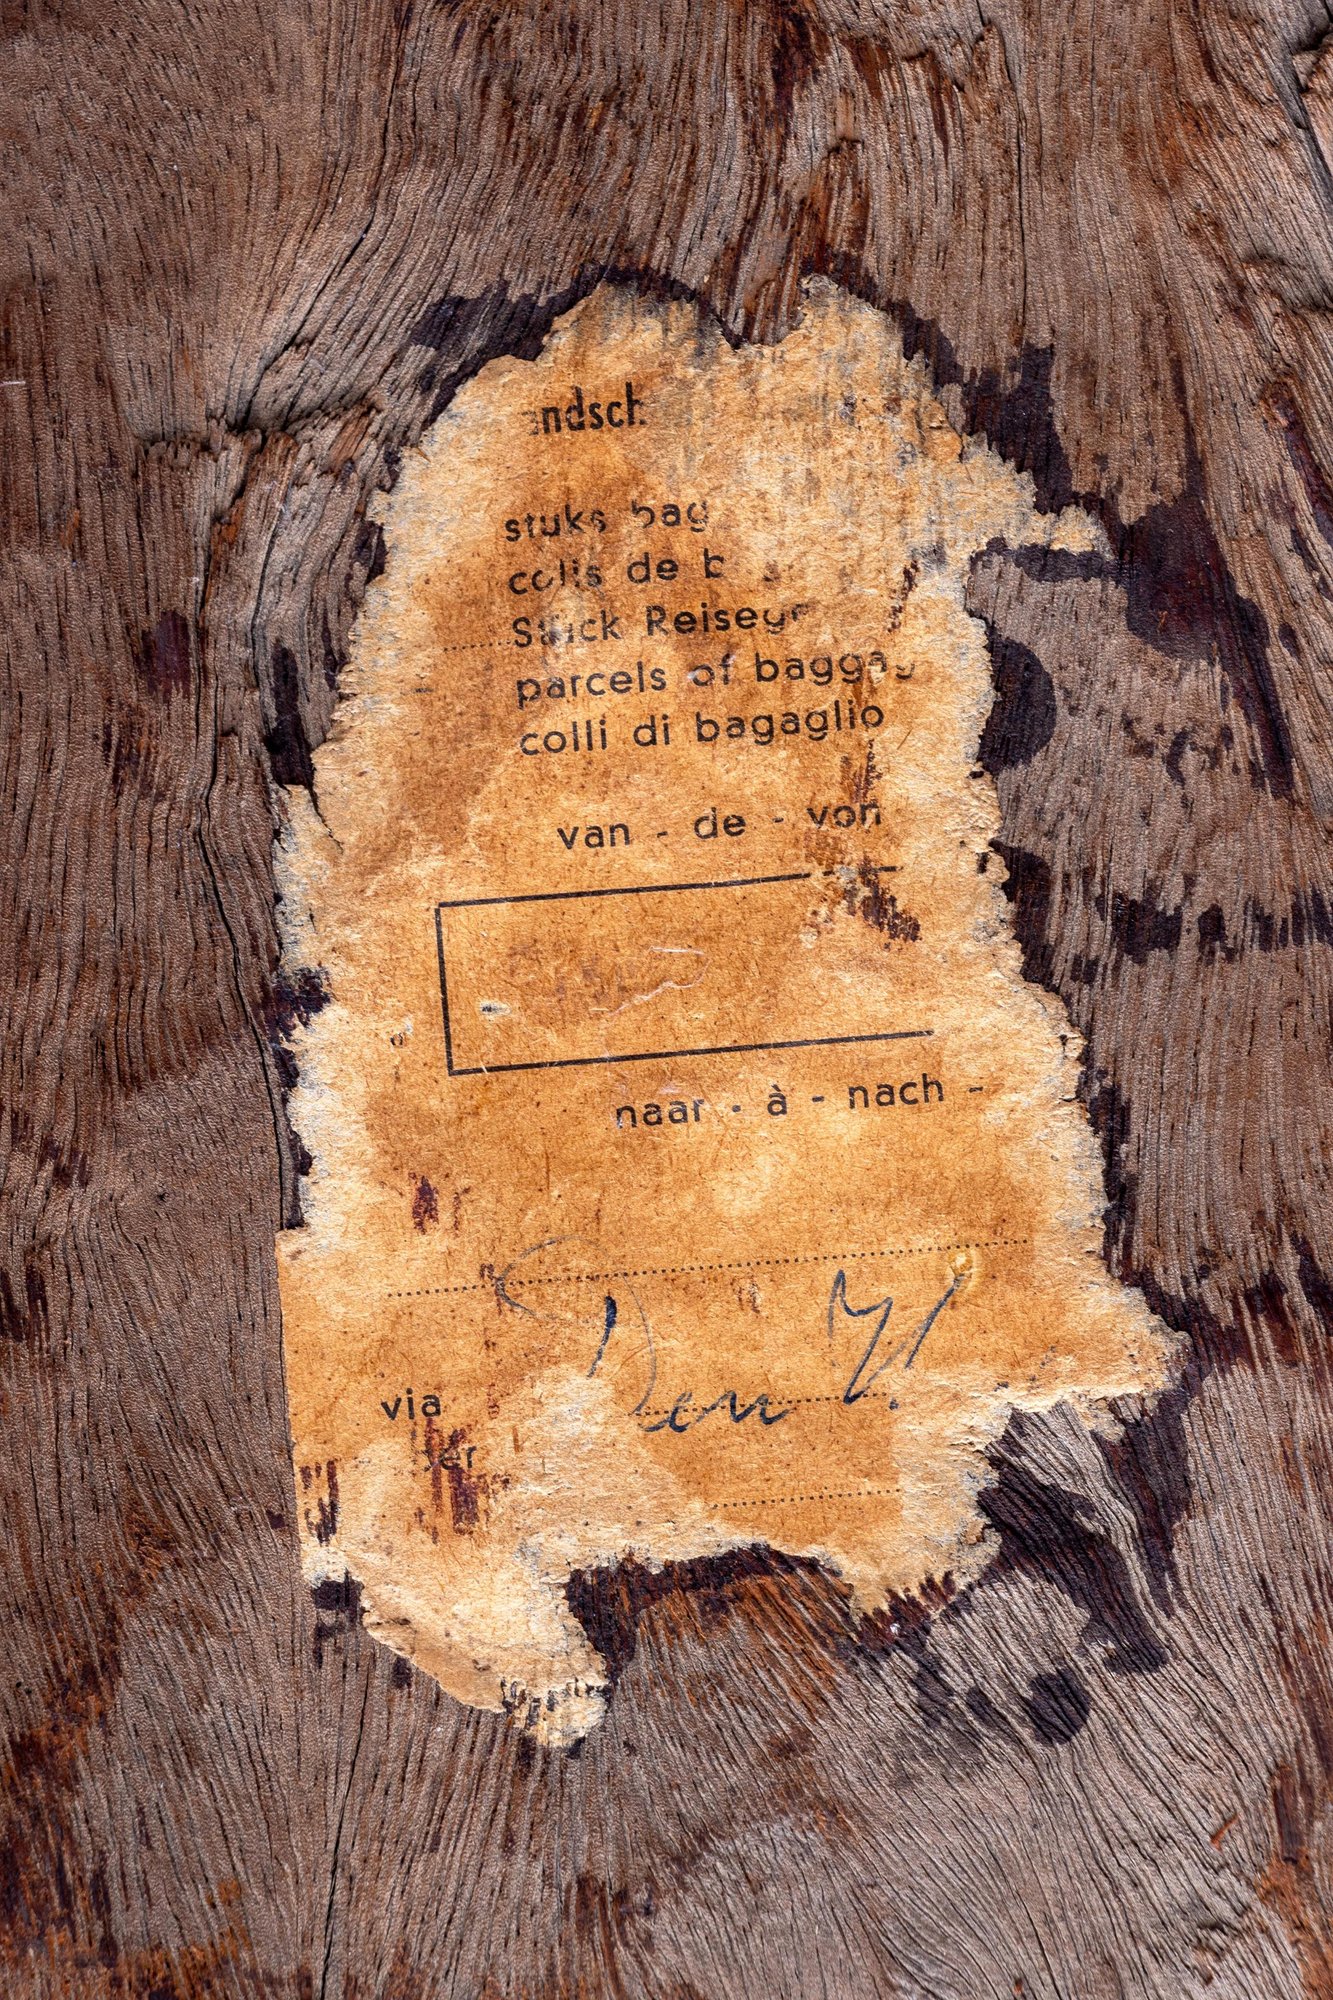 ndsch
stuks bag
colis de b
Stück Reisege
parcels of bagga
colli di bagaglio
van - de - von
naar - à - nach -
Den H
via